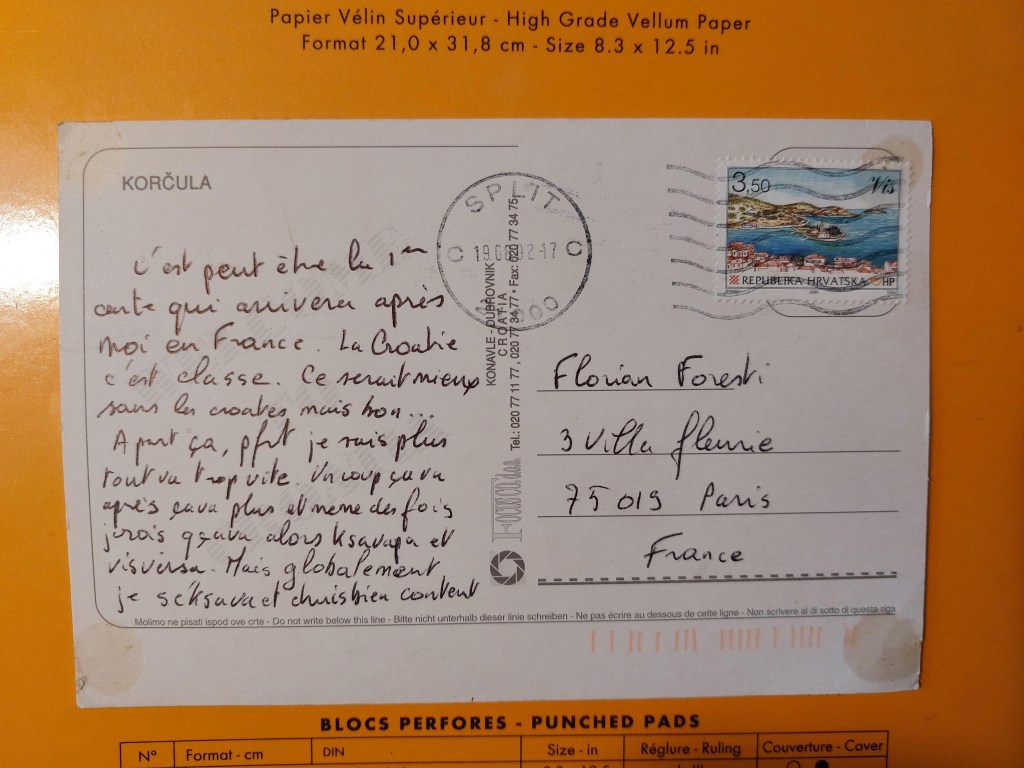 Papier Vélin Supérieur - High Grade Vellum Paper
Format 21,0 x 31,8 cm - Size 8.3 x 12.5 in
KORČULA
C'est peut être la 1ère
carte qui arrivera après
moi en France. La Croatie
c'est classe. Ce serait mieux
sans les croates mais bon...
A part ça, pfft je sais plus
tout va trop vite. Un coup ça va
après ça va plus et meme des fois
jcrois qçava alors ksavapa et
visversa. Mais globalement
je séksava et chuis bien content
SPLIT
C C
KONAVLE - DUBROVNIK
CROATIA
Tel.: 020 77 11 77, 020 77 34 77 • Fax: 020 77 34 75
3,50
Vis
REPUBLIKA HRVATSKA HP
Florian Foresti
3 Villa fleurie
75019 Paris
France
Molimo ne pisati ispod ove crte - Do not write below this line - Bitte nicht unterhalb dieser linie schreiben - Ne pas écrire au dessous de cette ligne - Non scrivere al di sotto di questa riga
BLOCS PERFORES - PUNCHED PADS
N° Format - cm DIN Size - in Réglure - Ruling Couverture - Cover